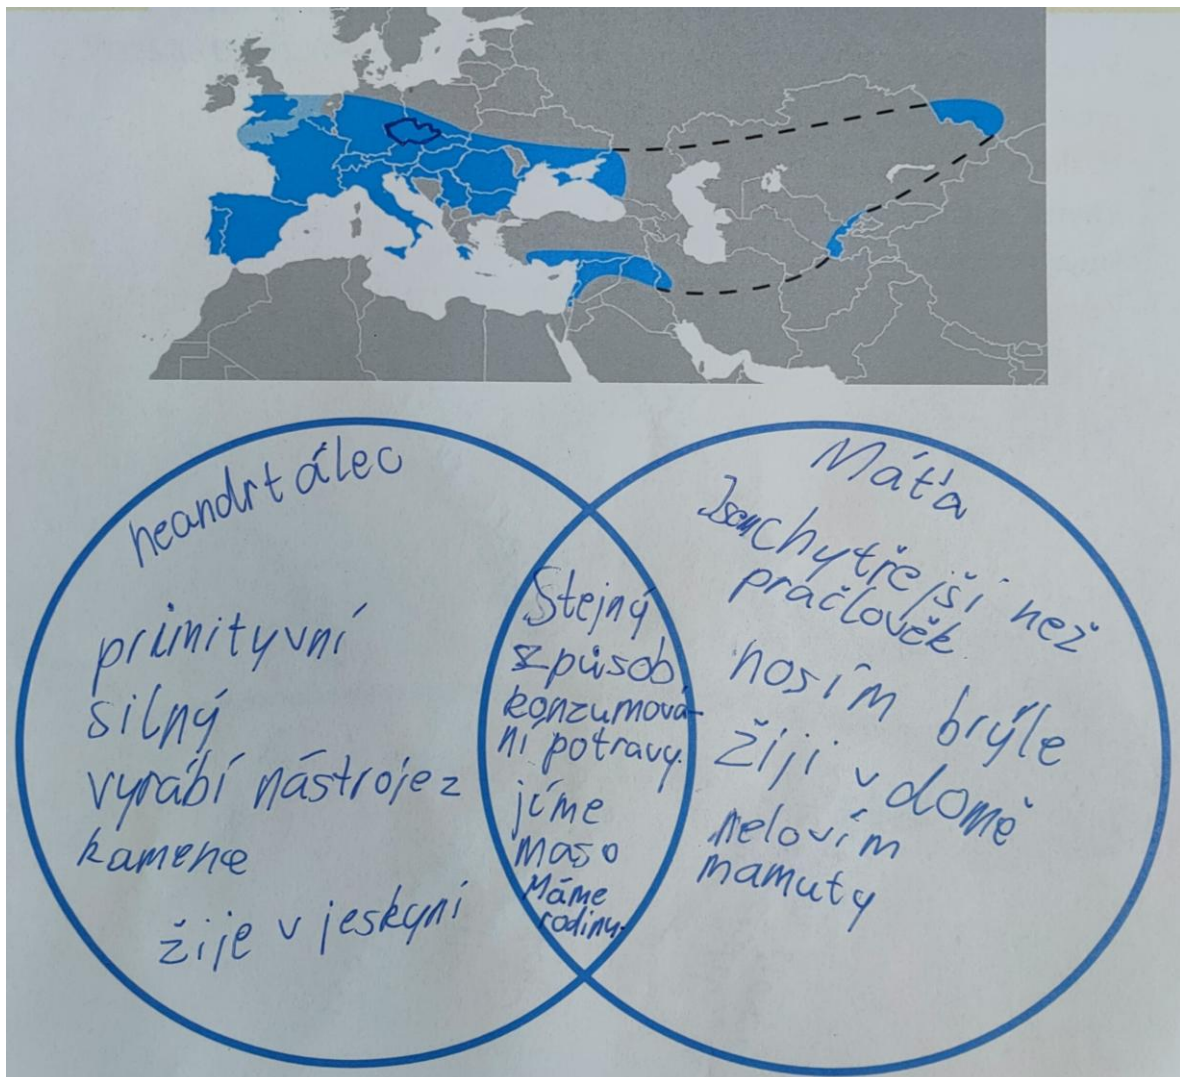 neandrtálec
primityvní
silný
vyrábí nástroje z
kamene
žije v jeskyni
Stejný
způsob
konzumová-
ní potravy.
jíme
maso
Máme
rodinu.
Máťa
Jsem chytřejší než
pračlověk.
nosím brýle
žiji v domě
nelovím
mamuty